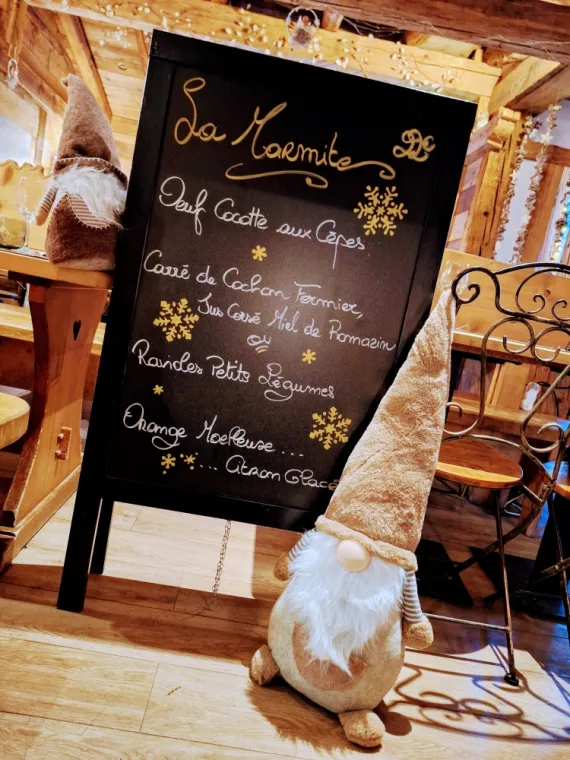 La Marmite
Oeuf Cocotte aux Cêpes
Carré de Cochon Fermier,
Jus Corsé Miel de Romarin
ou
Ravioles Petits Légumes
Orange Moelleuse ...
... Citron Glacé